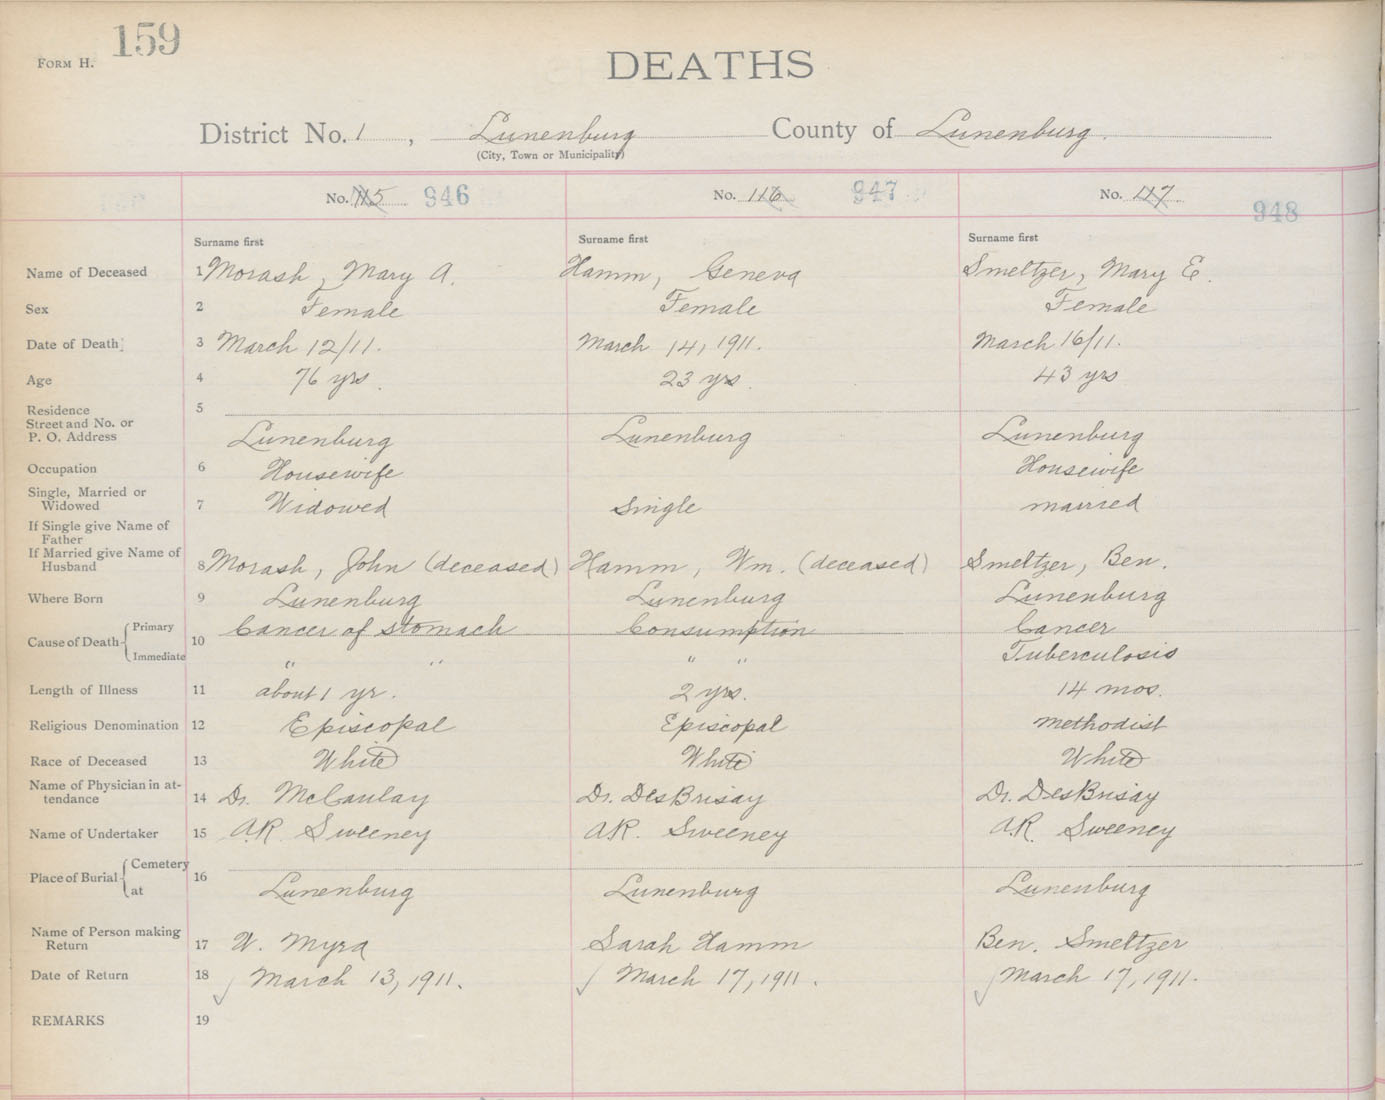 159
FORM H.
DEATHS
District No. 1, Lunenburg County of Lunenburg.
(City, Town or Municipality)
No. 115 946 No. 116 947 No. 117 948
Surname first Surname first Surname first
Name of Deceased 1 Morash, Mary A. Hamm, Geneva Smeltzer, Mary E.
Sex 2 Female Female Female
Date of Death 3 March 12/11. March 14, 1911. March 16/11.
Age 4 76 yrs. 23 yrs. 43 yrs
Residence 5
Street and No. or
P. O. Address Lunenburg Lunenburg Lunenburg
Occupation 6 Housewife Housewife
Single, Married or
Widowed 7 Widowed Single married
If Single give Name of
Father
If Married give Name of
Husband 8 Morash, John (deceased) Hamm, Wm. (deceased) Smeltzer, Ben.
Where Born 9 Lunenburg Lunenburg Lunenburg
Cause of Death Primary 10 Cancer of stomach Consumption Cancer
Immediate " " " " Tuberculosis
Length of Illness 11 about 1 yr. 2 yrs. 14 mos.
Religious Denomination 12 Episcopal Episcopal methodist
Race of Deceased 13 White White White
Name of Physician in at-
tendance 14 Dr. McCaulay Dr. DesBrisay Dr. DesBrisay
Name of Undertaker 15 A.R. Sweeney A.R. Sweeney A.R. Sweeney
Place of Burial Cemetery 16
at Lunenburg Lunenburg Lunenburg
Name of Person making
Return 17 W. Myra Sarah Hamm Ben. Smeltzer
Date of Return 18 March 13, 1911. March 17, 1911. March 17, 1911.
REMARKS 19